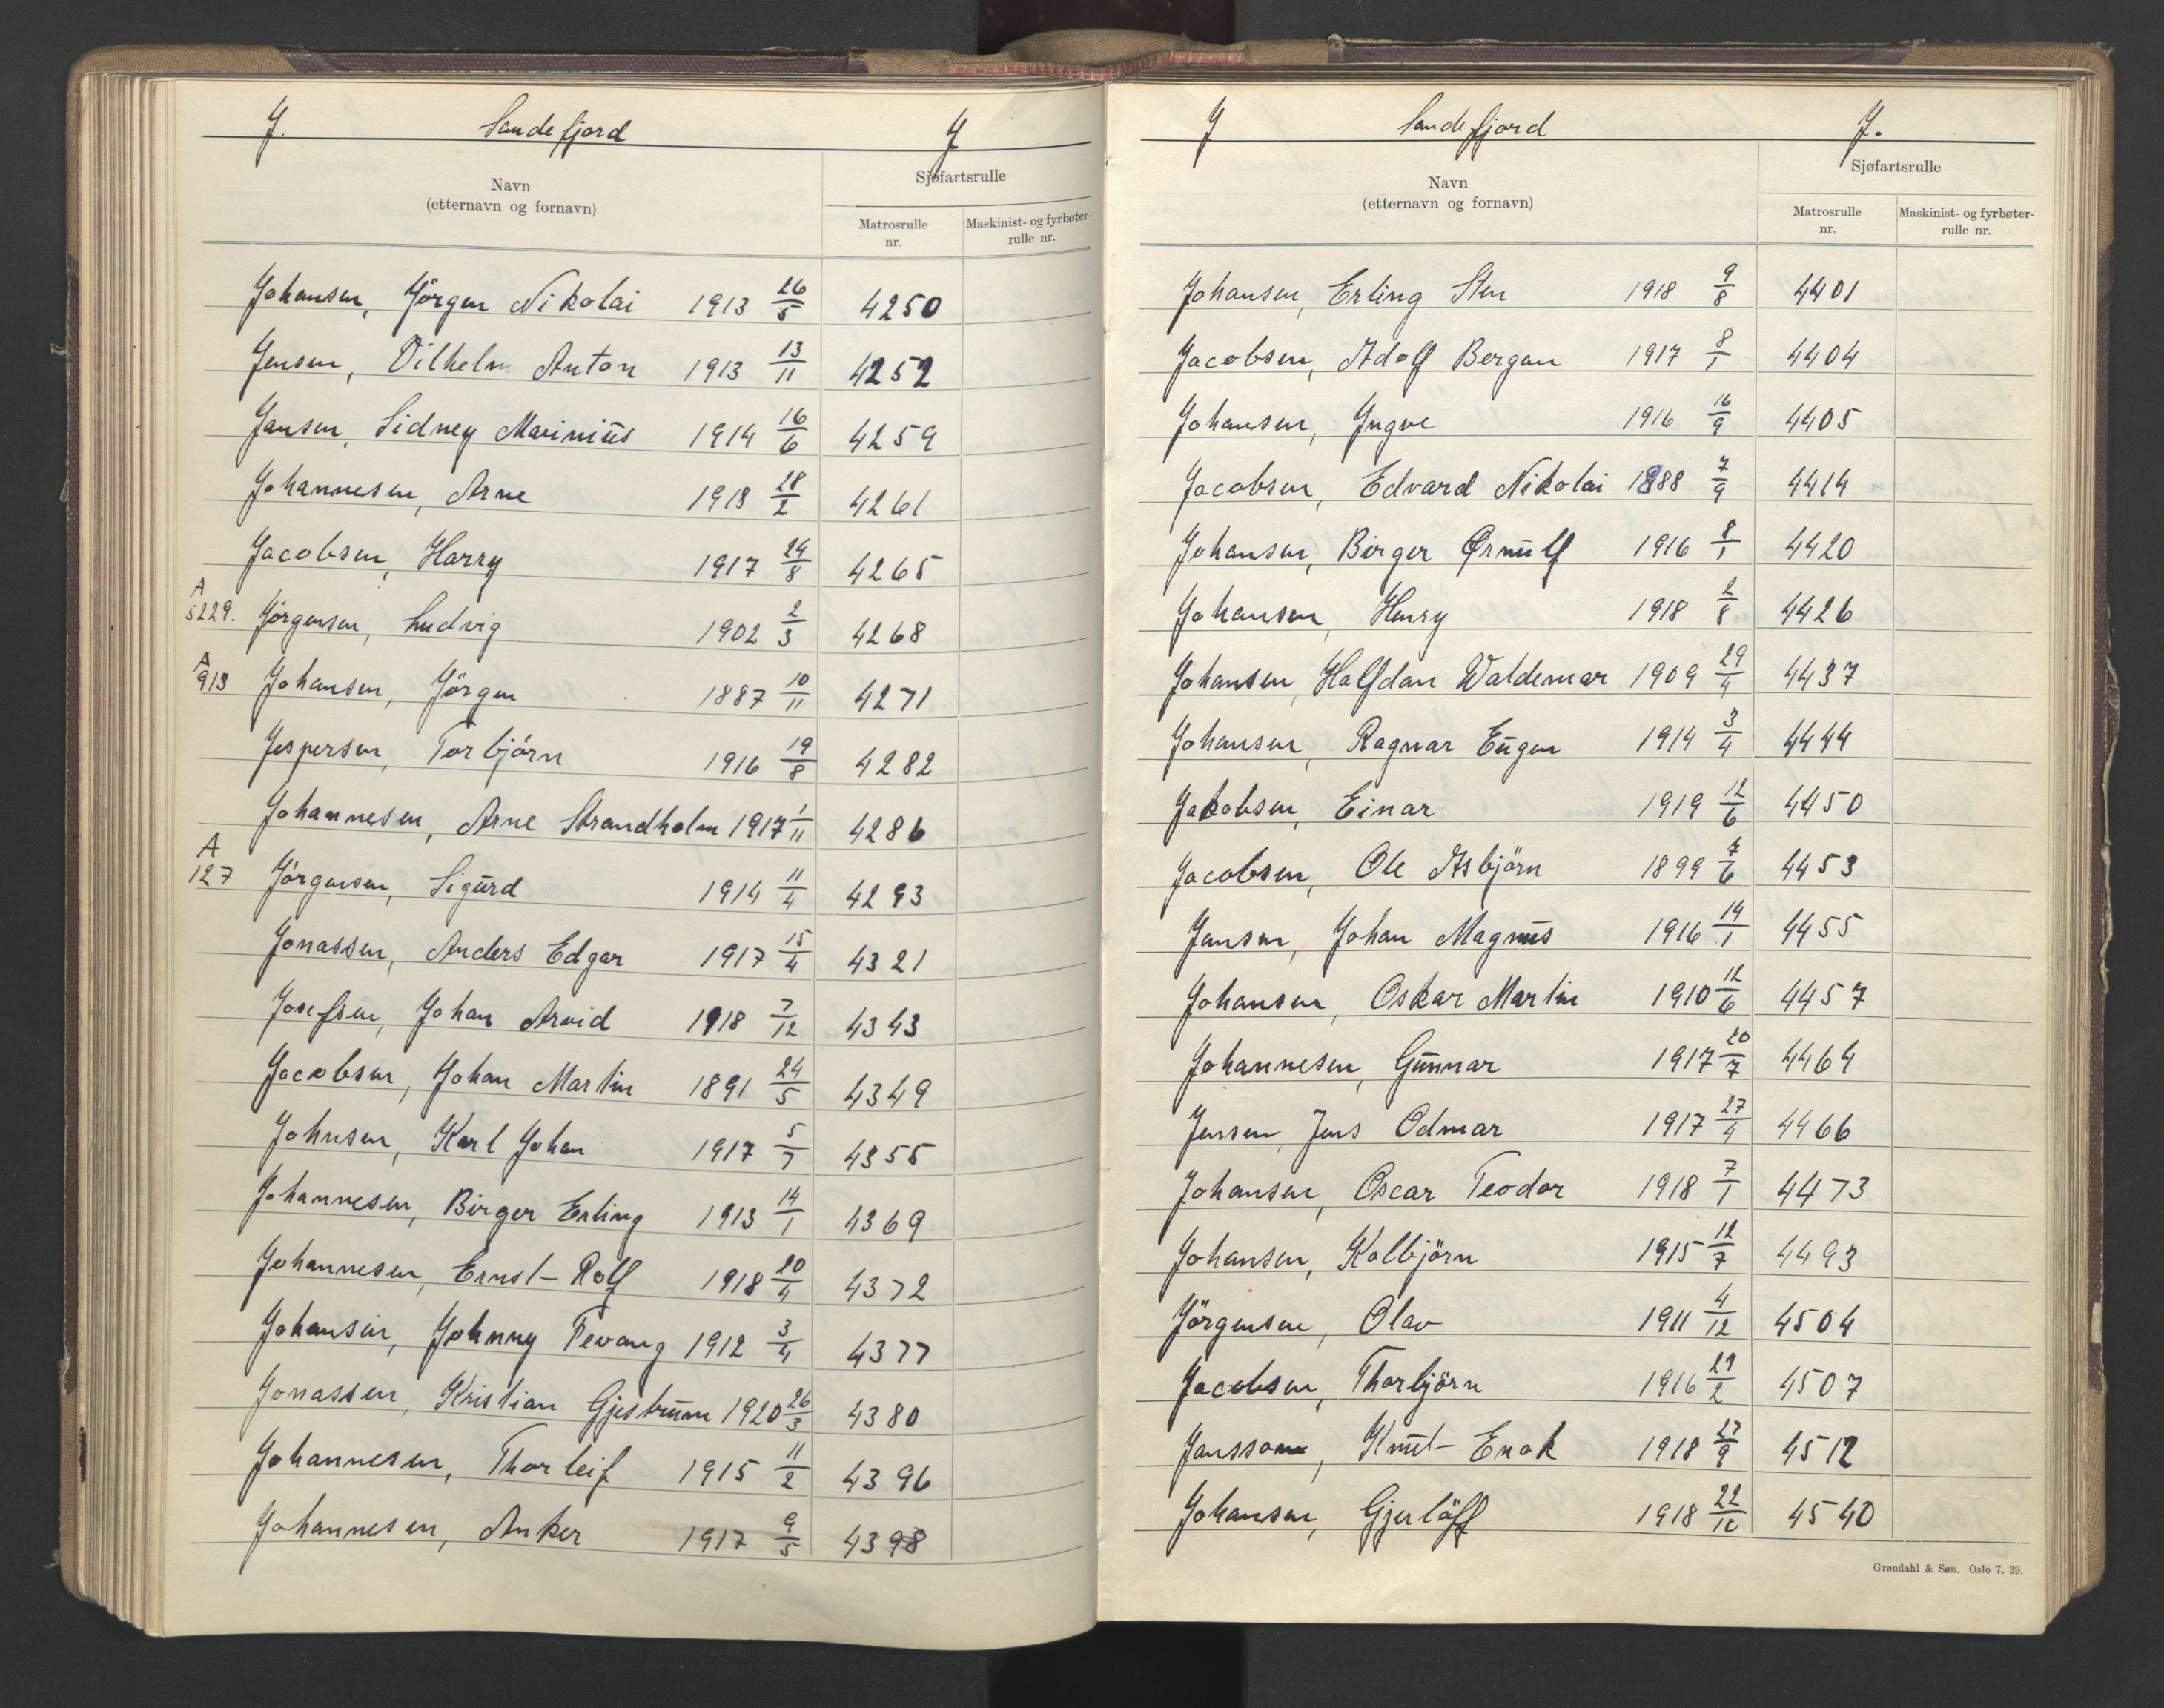 J. Sandefjord J
Navn
(etternavn og fornavn)
Sjøfartsrulle
Matrosrulle nr.
Maskinist- og fyrbøter-rulle nr.
Johansen, Jörgen Nikolai 1913 26/5 4250
Jensen, Vilhelm Anton 1913 13/11 4252
Jansen, Sidney Marinius 1914 16/6 4259
Johannesen, Arne 1918 28/2 4261
Jacobsen, Harry 1917 24/8 4265
A 5229. Jørgensen, Ludvig 1902 2/3 4268
A 913 Johansen, Jörgen 1887 10/11 4271
Jespersen, Torbjörn 1916 19/8 4282
Johannesen, Arne Strandholm 1917 1/11 4286
A 127 Jörgensen, Sigurd 1914 11/4 4293
Jonassen, Anders Edgar 1917 15/4 4321
Josefsen, Johan Arvid 1918 7/12 4343
Jacobsen, Johan Martin 1891 24/5 4349
Johnsen, Karl Johan 1917 5/7 4355
Johannesen, Birger Erling 1913 14/1 4369
Johannesen, Ernst-Rolf 1918 20/4 4372
Johansen, Johnny Tevang 1912 3/4 4377
Jonassen, Kristian Gjestrum 1920 26/3 4380
Johannesen, Thorleif 1915 11/2 4396
Johannesen, Anker 1917 9/5 4398
J Sandefjord J.
Navn
(etternavn og fornavn)
Sjøfartsrulle
Matrosrulle nr.
Maskinist- og fyrbøter-rulle nr.
Johansen, Erling Sten 1918 9/8 4401
Jacobsen, Adolf Bergan 1917 8/1 4404
Johansen, Yngve 1916 16/9 4405
Jacobsen, Edvard Nikolai 1888 7/9 4414
Johansen, Birger Ørnulf 1916 8/1 4420
Johansen, Henry 1918 2/8 4426
Johansen, Halfdan Waldemar 1909 29/4 4437
Johansen, Ragnar Eugen 1914 3/4 4444
Jakobsen, Einar 1919 12/6 4450
Jacobsen, Ole Asbjörn 1899 7/6 4453
Jansen, Johan Magnus 1916 14/1 4455
Johansen, Oskar Martin 1910 12/6 4457
Johannesen, Gunnar 1917 20/7 4464
Jensen, Jens Odmar 1917 27/4 4466
Johansen, Oscar Teodor 1918 7/1 4473
Johansen, Kolbjörn 1915 12/7 4493
Jörgensen, Olav 1911 4/12 4504
Jacobsen, Thorbjörn 1916 29/2 4507
Jansson, Knut-Enok 1918 27/9 4512
Johansen, Gjerlöff 1918 22/12 4540
Grøndahl & Søn. Oslo 7. 39.